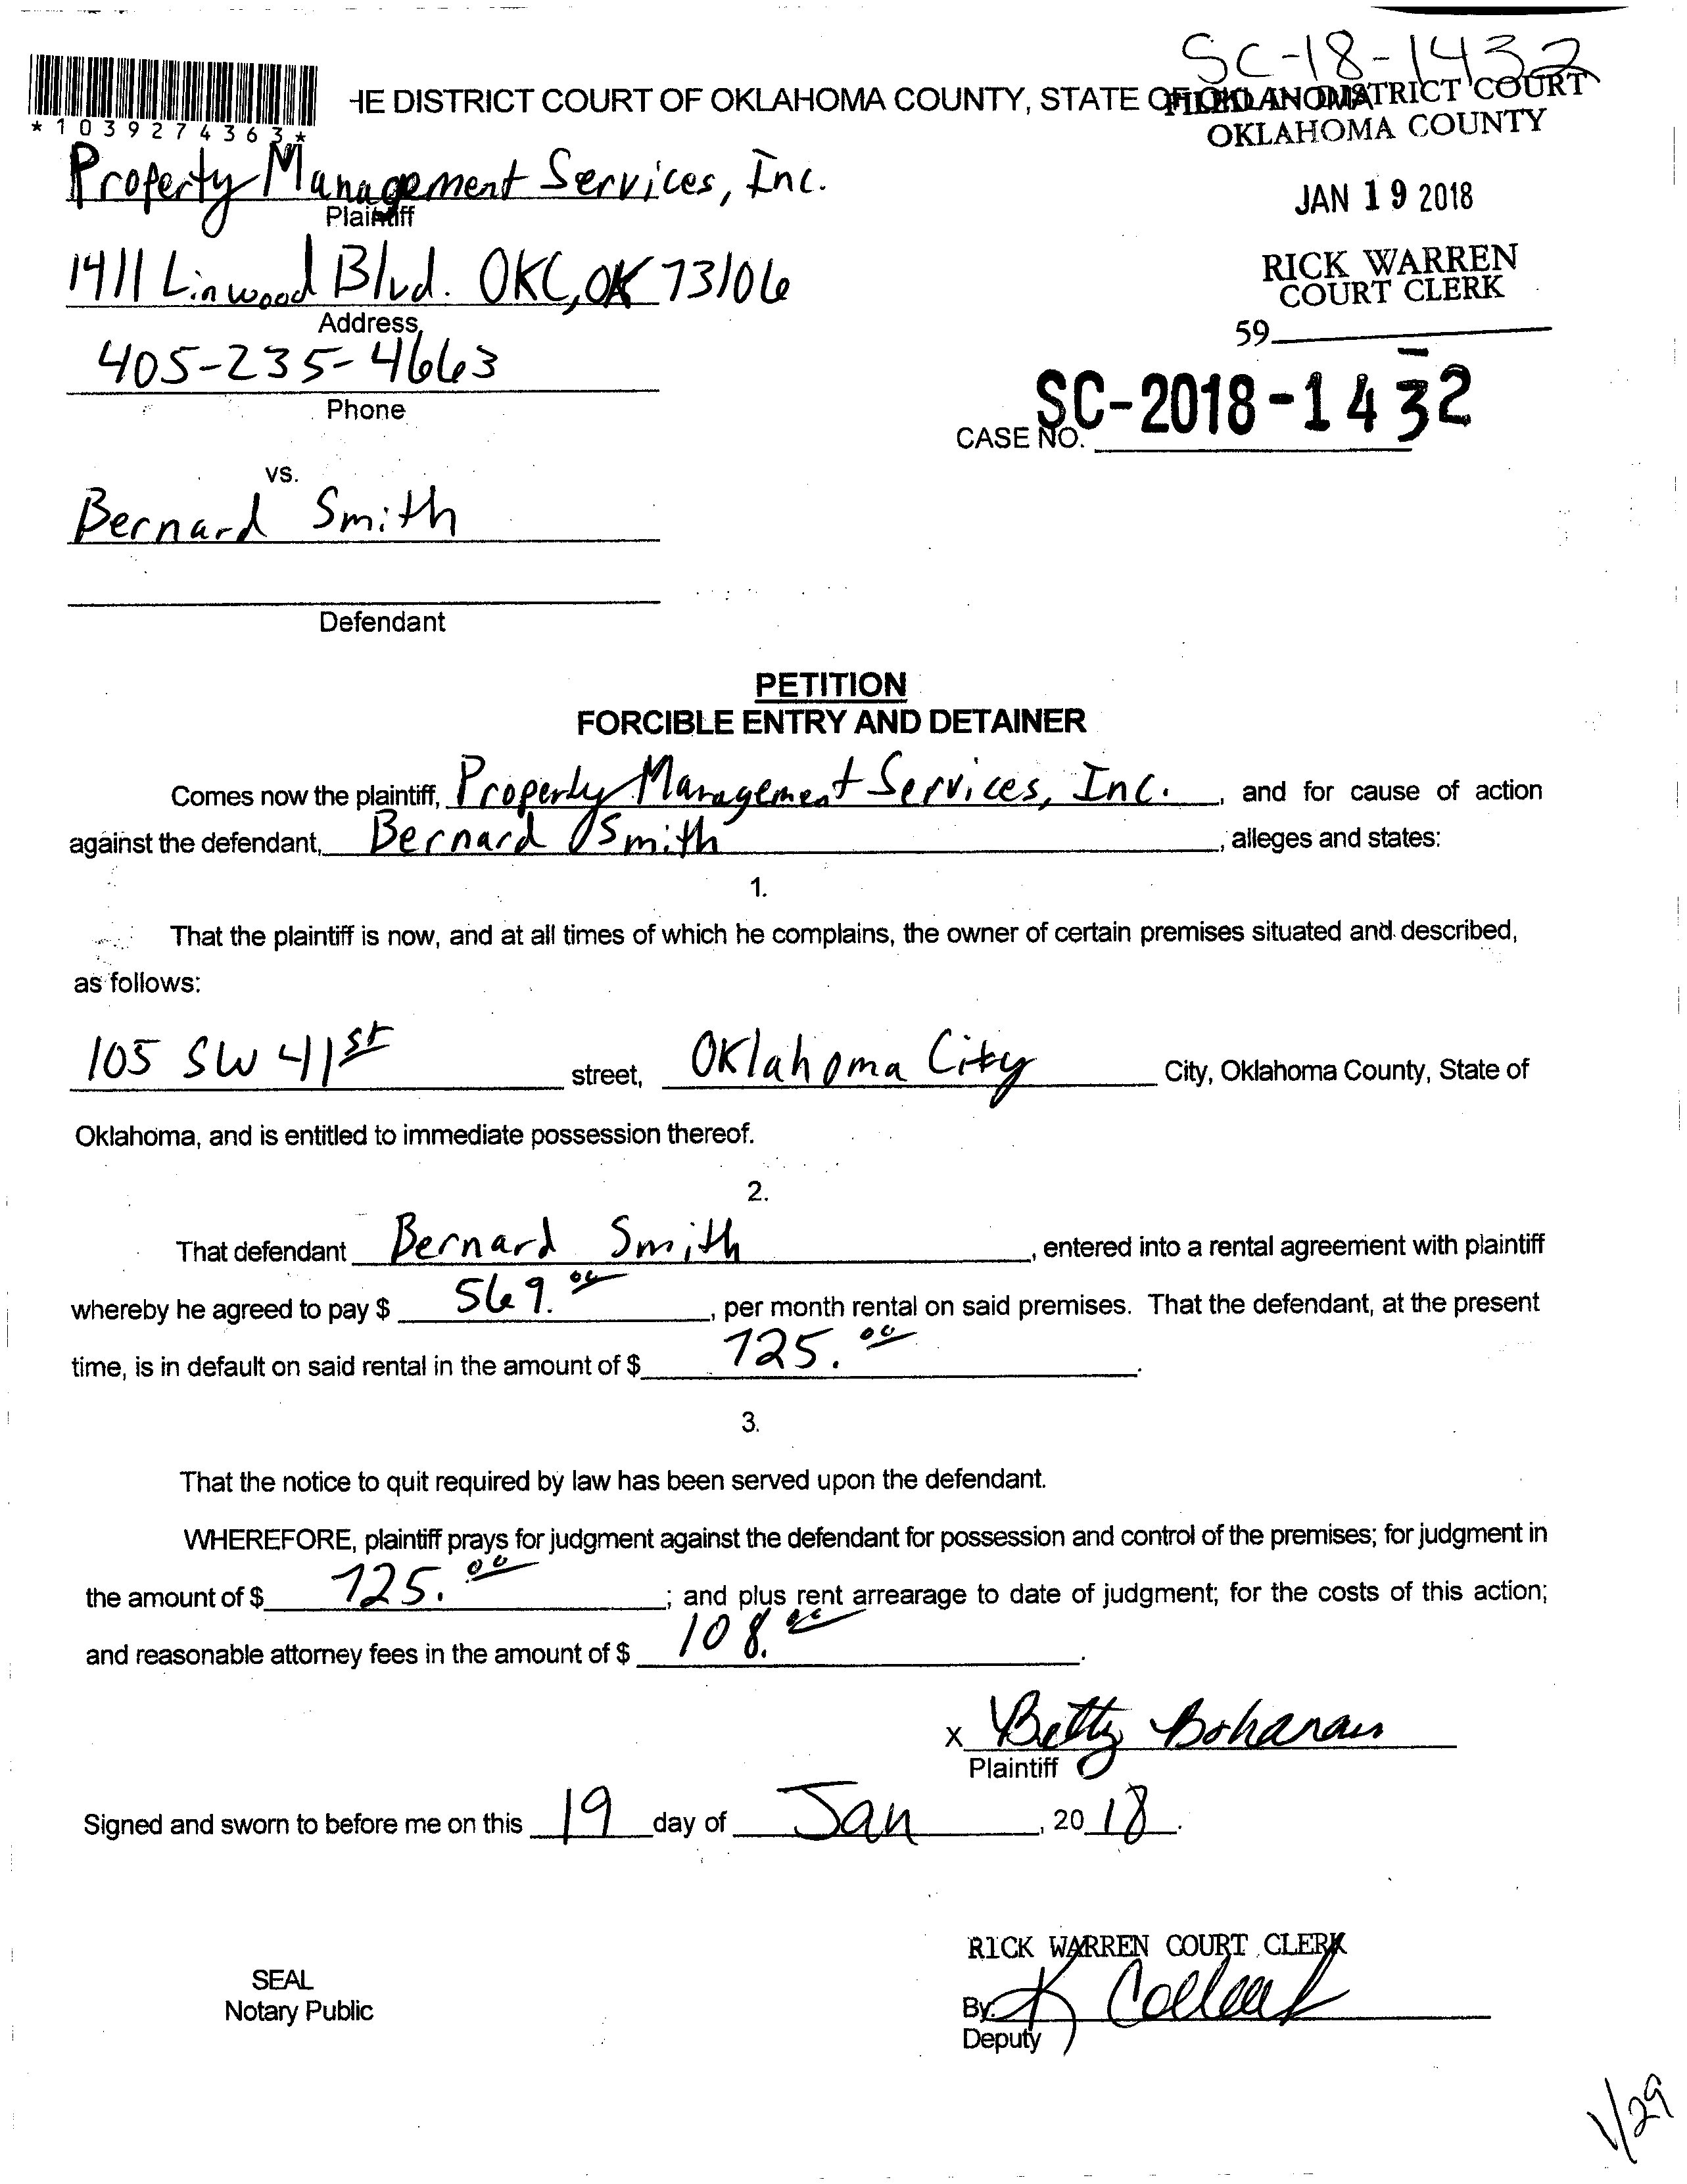 SC-18-1432
*1039274363*
HE DISTRICT COURT OF OKLAHOMA COUNTY, STATE OF OKLAHOMA
FILED IN DISTRICT COURT
OKLAHOMA COUNTY
Property Management Services, Inc.
Plaintiff
JAN 19 2018
1411 Linwood Blvd. OKC, OK 73106
Address
RICK WARREN
COURT CLERK
59
405-235-4663
Phone
CASE NO. SC-2018-1432
vs.
Bernard Smith
Defendant
PETITION
FORCIBLE ENTRY AND DETAINER
Comes now the plaintiff, Property Management Services, Inc., and for cause of action
against the defendant, Bernard Smith, alleges and states:
1.
That the plaintiff is now, and at all times of which he complains, the owner of certain premises situated and described,
as follows:
105 SW 41st street, Oklahoma City City, Oklahoma County, State of
Oklahoma, and is entitled to immediate possession thereof.
2.
That defendant Bernard Smith, entered into a rental agreement with plaintiff
whereby he agreed to pay $ 569.00, per month rental on said premises. That the defendant, at the present
time, is in default on said rental in the amount of $ 725.00.
3.
That the notice to quit required by law has been served upon the defendant.
WHEREFORE, plaintiff prays for judgment against the defendant for possession and control of the premises; for judgment in
the amount of $ 725.00; and plus rent arrearage to date of judgment; for the costs of this action;
and reasonable attorney fees in the amount of $ 108.00.
X Betty Bohanan
Plaintiff
Signed and sworn to before me on this 19 day of Jan, 2018.
RICK WARREN COURT CLERK
SEAL
Notary Public
By: K
Deputy
1/29